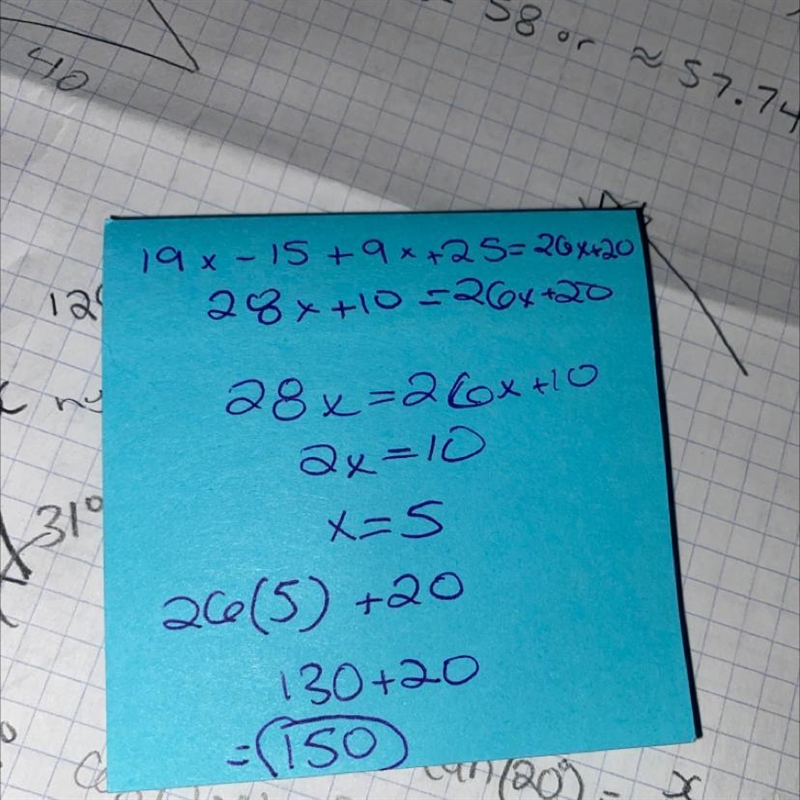 40
58 or ≈ 57.74
19x - 15 + 9x + 25 = 26x+20
28x + 10 = 26x+20
28x = 26x+10
2x = 10
x = 5
26(5) + 20
130+20
= 150
31°
tan(20°) = x